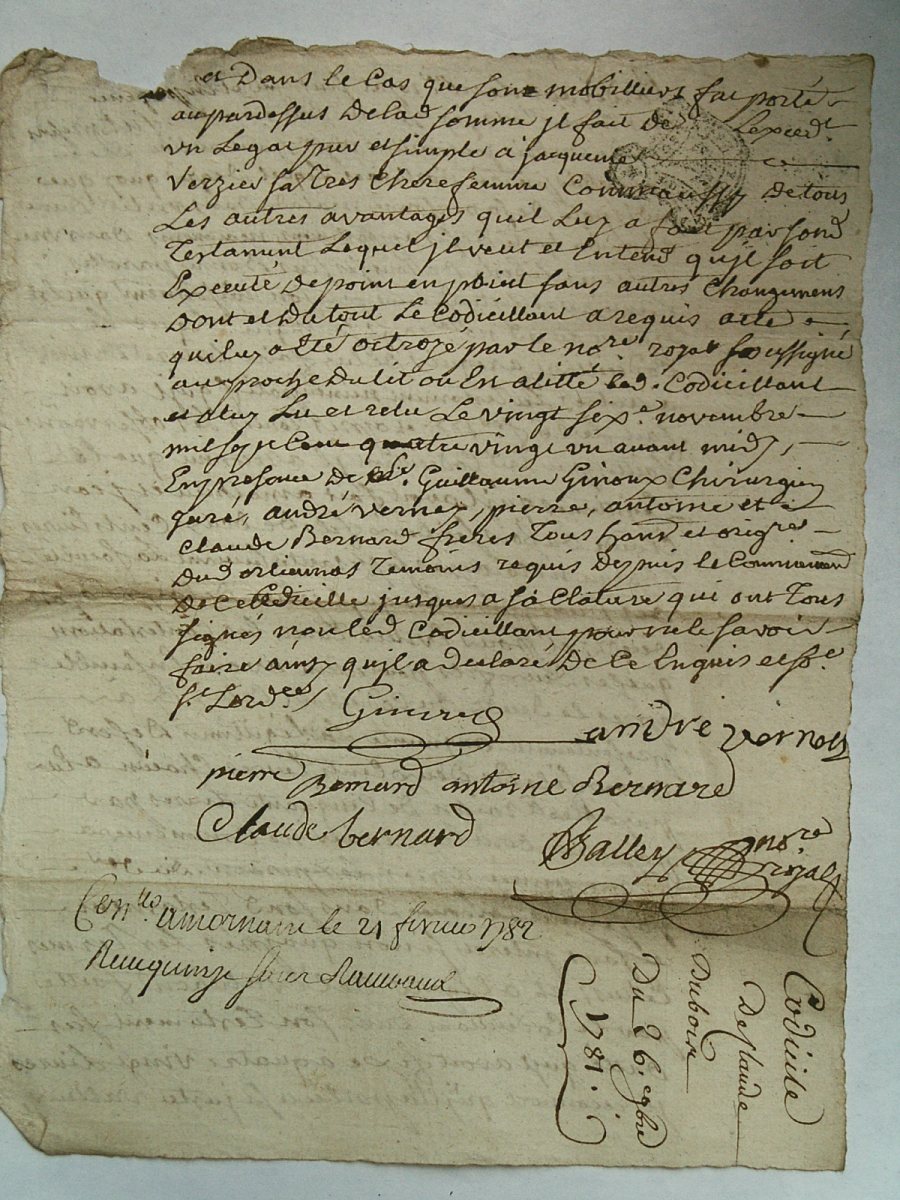 et Dans le Cas que son mobilliers fut porté
au pardessus De lad somme jl fait de Lexced.t
un Legat pur et simple à jacqueme
Verzier sa Tres Chere femme Comme aussy De tous
Les autres avantages qu'il Luy a fait par sond
Testament Lequel jl veut et Entend qu'jl soit
Executé De point en point sans autres Changemens
Dont et Du tout Le Codicillant a requis acte
qui luy a été octroyé par le no.re royal soussigné
au proche Du lit ou En alitté led. Codicillant
et a luy Lu et relu Le vingt six.e novembre
mil sept Cent quatre vingt un avant midy,
En presence De Guillaume Ginoux Chirurgien
juré, andré Vernay, pierre, antoine et
Claude Bernard freres Tous han.s et orig.res
Dud orlienas Temoins requis Depuis le Commencem
De Ce Codicille jusques a sa Cloture qui ont Tous
signés non led Codicillant pour ne le savoir
faire ainsy qu'jl a Declaré De Ce Enquis et so.e
s.t L'ord.ce
andre vernay
pierre Bernard antoine Bernard
Claude bernard
no.re royal
a mornant le 21 fevrier 1782
Reçu quinze
Codicile
De Claude
Duboire
Du 26. 9bre
1781.